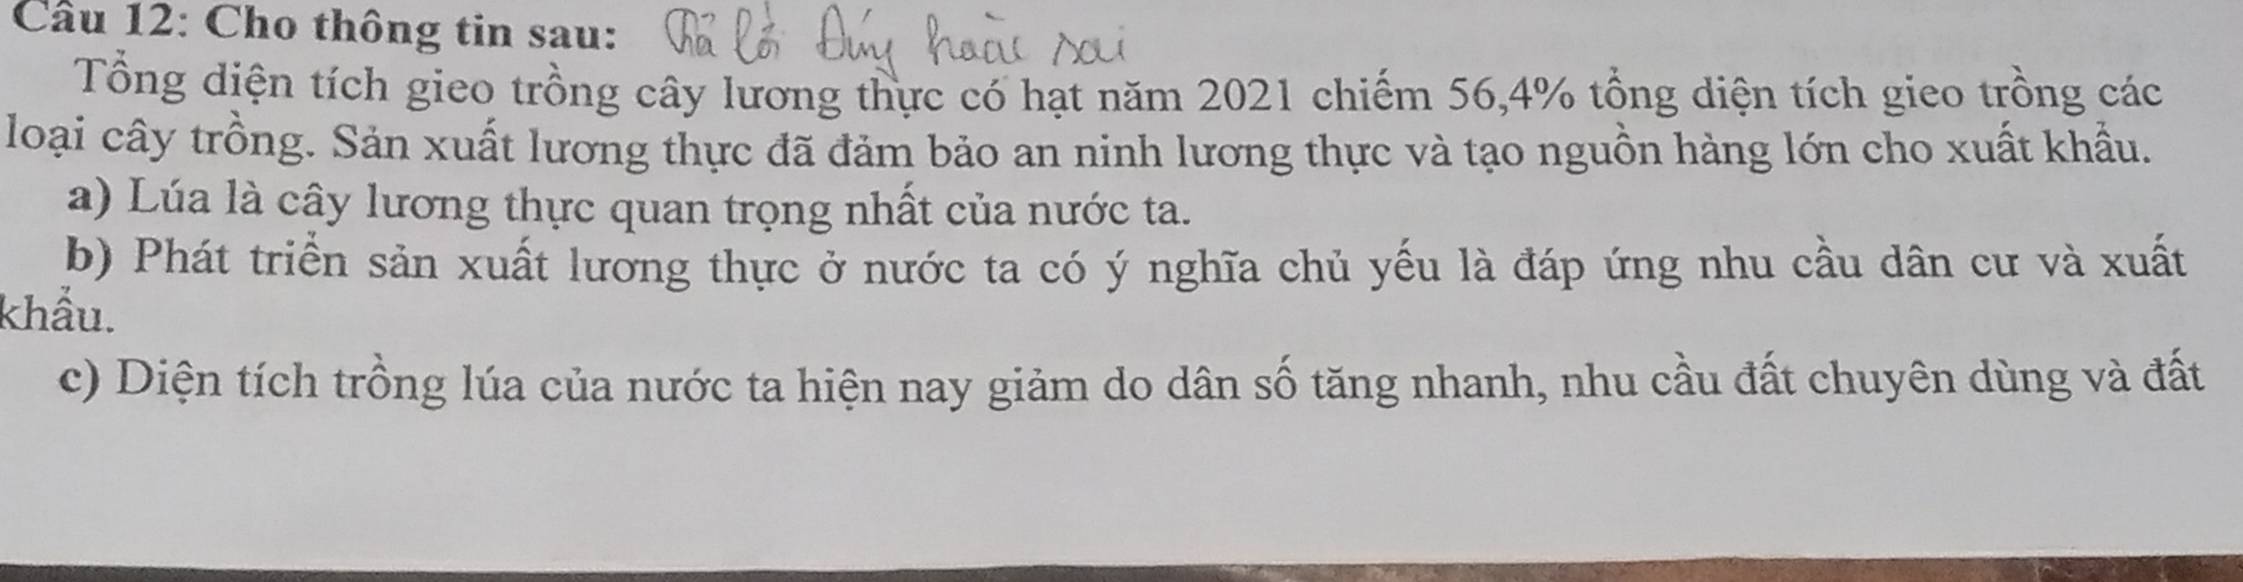 Câu 12: Cho thông tin sau: Trả lời Đúng hoặc sai
Tổng diện tích gieo trồng cây lương thực có hạt năm 2021 chiếm 56,4% tổng diện tích gieo trồng các
loại cây trồng. Sản xuất lương thực đã đảm bảo an ninh lương thực và tạo nguồn hàng lớn cho xuất khẩu.
a) Lúa là cây lương thực quan trọng nhất của nước ta.
b) Phát triển sản xuất lương thực ở nước ta có ý nghĩa chủ yếu là đáp ứng nhu cầu dân cư và xuất
khẩu.
c) Diện tích trồng lúa của nước ta hiện nay giảm do dân số tăng nhanh, nhu cầu đất chuyên dùng và đất